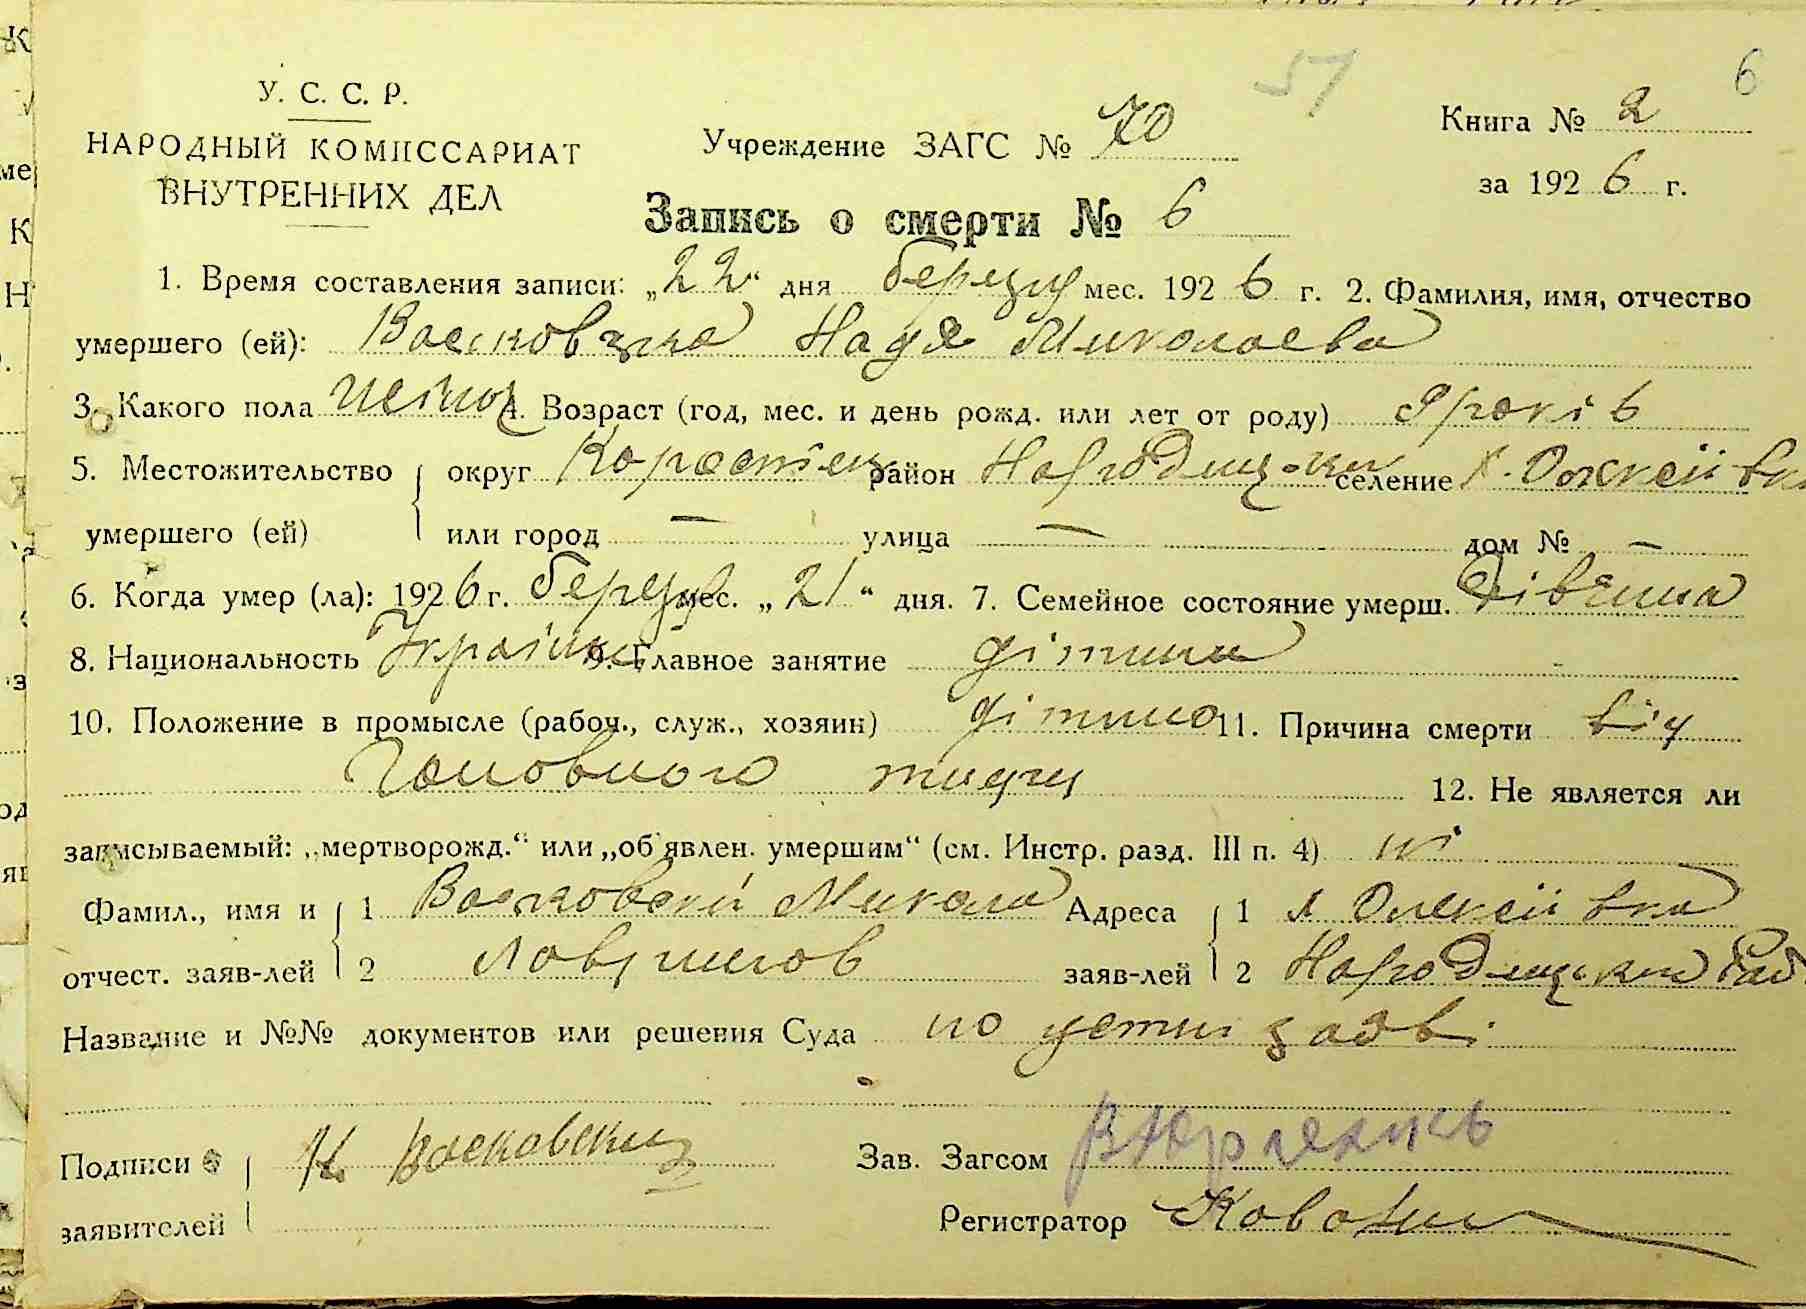 51
6
У. С. С. Р.
НАРОДНЫЙ КОМИССАРИАТ
ВНУТРЕННИХ ДЕЛ
Учреждение ЗАГС № 70
Книга № 2
за 1926 г.
Запись о смерти № 6
1. Время составления записи: „22“ дня березня мес. 1926 г. 2. Фамилия, имя, отчество
умершего (ей): Восковська Надя Миколаева
3. Какого пола жіноч 4. Возраст (год, мес. и день рожд. или лет от роду) 9 років
5. Местожительство округ Коростен район Народицьки селение х. Олексіівка
умершего (ей) или город — улица — дом № —
6. Когда умер (ла): 1926 г. березня мес. „21“ дня. 7. Семейное состояние умерш. дівчина
8. Национальность Українка 9. Главное занятие дітина
10. Положение в промысле (рабоч., служ., хозяин) дітина 11. Причина смерти від
Головного тифу 12. Не является ли
записываемый: „мертворожд.“ или „об'явлен. умершим“ (см. Инстр. разд. III п. 4) ні
Фамил., имя и 1 Восковский Микола Адреса 1 Олексіівка
отчест. заяв-лей 2 заяв-лей 2 Народицького рай
Название и №№ документов или решения Суда по устни заяві
Подписи Н. Восковский Зав. Загсом
заявителей Регистратор